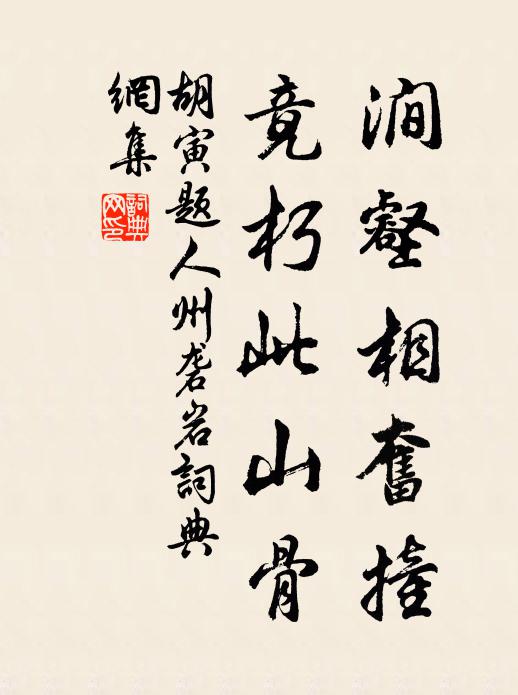 澗壑相奮撞
竟朽此山骨
胡寅题人州砻岩詞典
網集
詞典网印